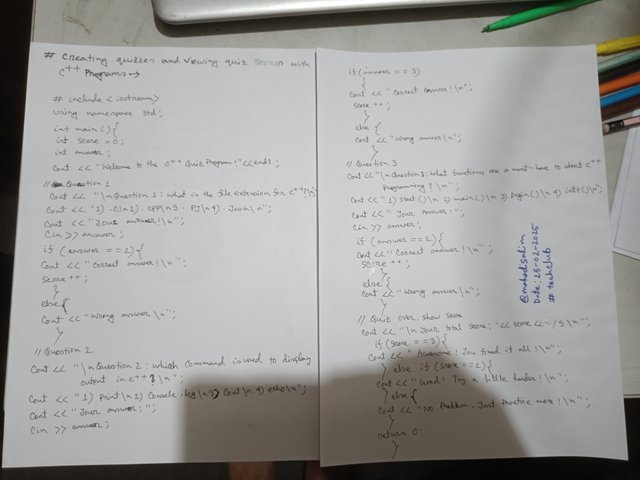 # Creating quizzes and viewing quiz scores with
C++ Programs →
# include <iostream>
using namespace std;
int main () {
int score = 0;
int answer;
Cout << "Welcome to the C++ Quiz Program!"<<endl;
// Question 1
Cout << "\n Question 1: What is the file extension for C++?\n";
Cout << "1) .C\n2) .CPP\n3 . Py\n4) . Java\n";
Cout << "Your answer!\n";
Cin >> answer;
if (answer == 2){
Cout << "Correct answer!\n";
score ++;
}
else{
Cout << "Wrong answer \n";
}
// Question 2
Cout << "\n Question 2: which command is used to display
output in c++?\n";
Cout << "1) Print \n2) Console.log\n3) Cout\n 4) echo\n";
Cout << "Your answer!";
Cin >> answer;
if (answer == 3)
{
Cout << "Correct Answer!\n";
score ++;
}
else{
Cout << "Wrong answer\n";
}
// Question 3
Cout <<"\n Question 3: What functions are a must-have to start C++
Programming?\n";
Cout << "1) Start()\n 2) main()\n 3) begin()\n 4) int()\n";
Cout << "Your Answer!";
Cin >> answer;
if (answer ==2){
Cout << "Correct answer!\n";
score ++;
}
else{
Cout << "Wrong answer \n";
}
// Quiz over, show score
Cout << "\n Your total score: "<< score << "/3 \n";
if (score ==3){
Cout << "Awesome! You fixed it all!\n";
} else if (score ==2){
Cout << "Good! Try a little harder!\n";
} else{
Cout << "No Problem. Just Practice more!\n";
}
return 0;
}
@mahadisalim
Date: 25-02-2025
# techclub